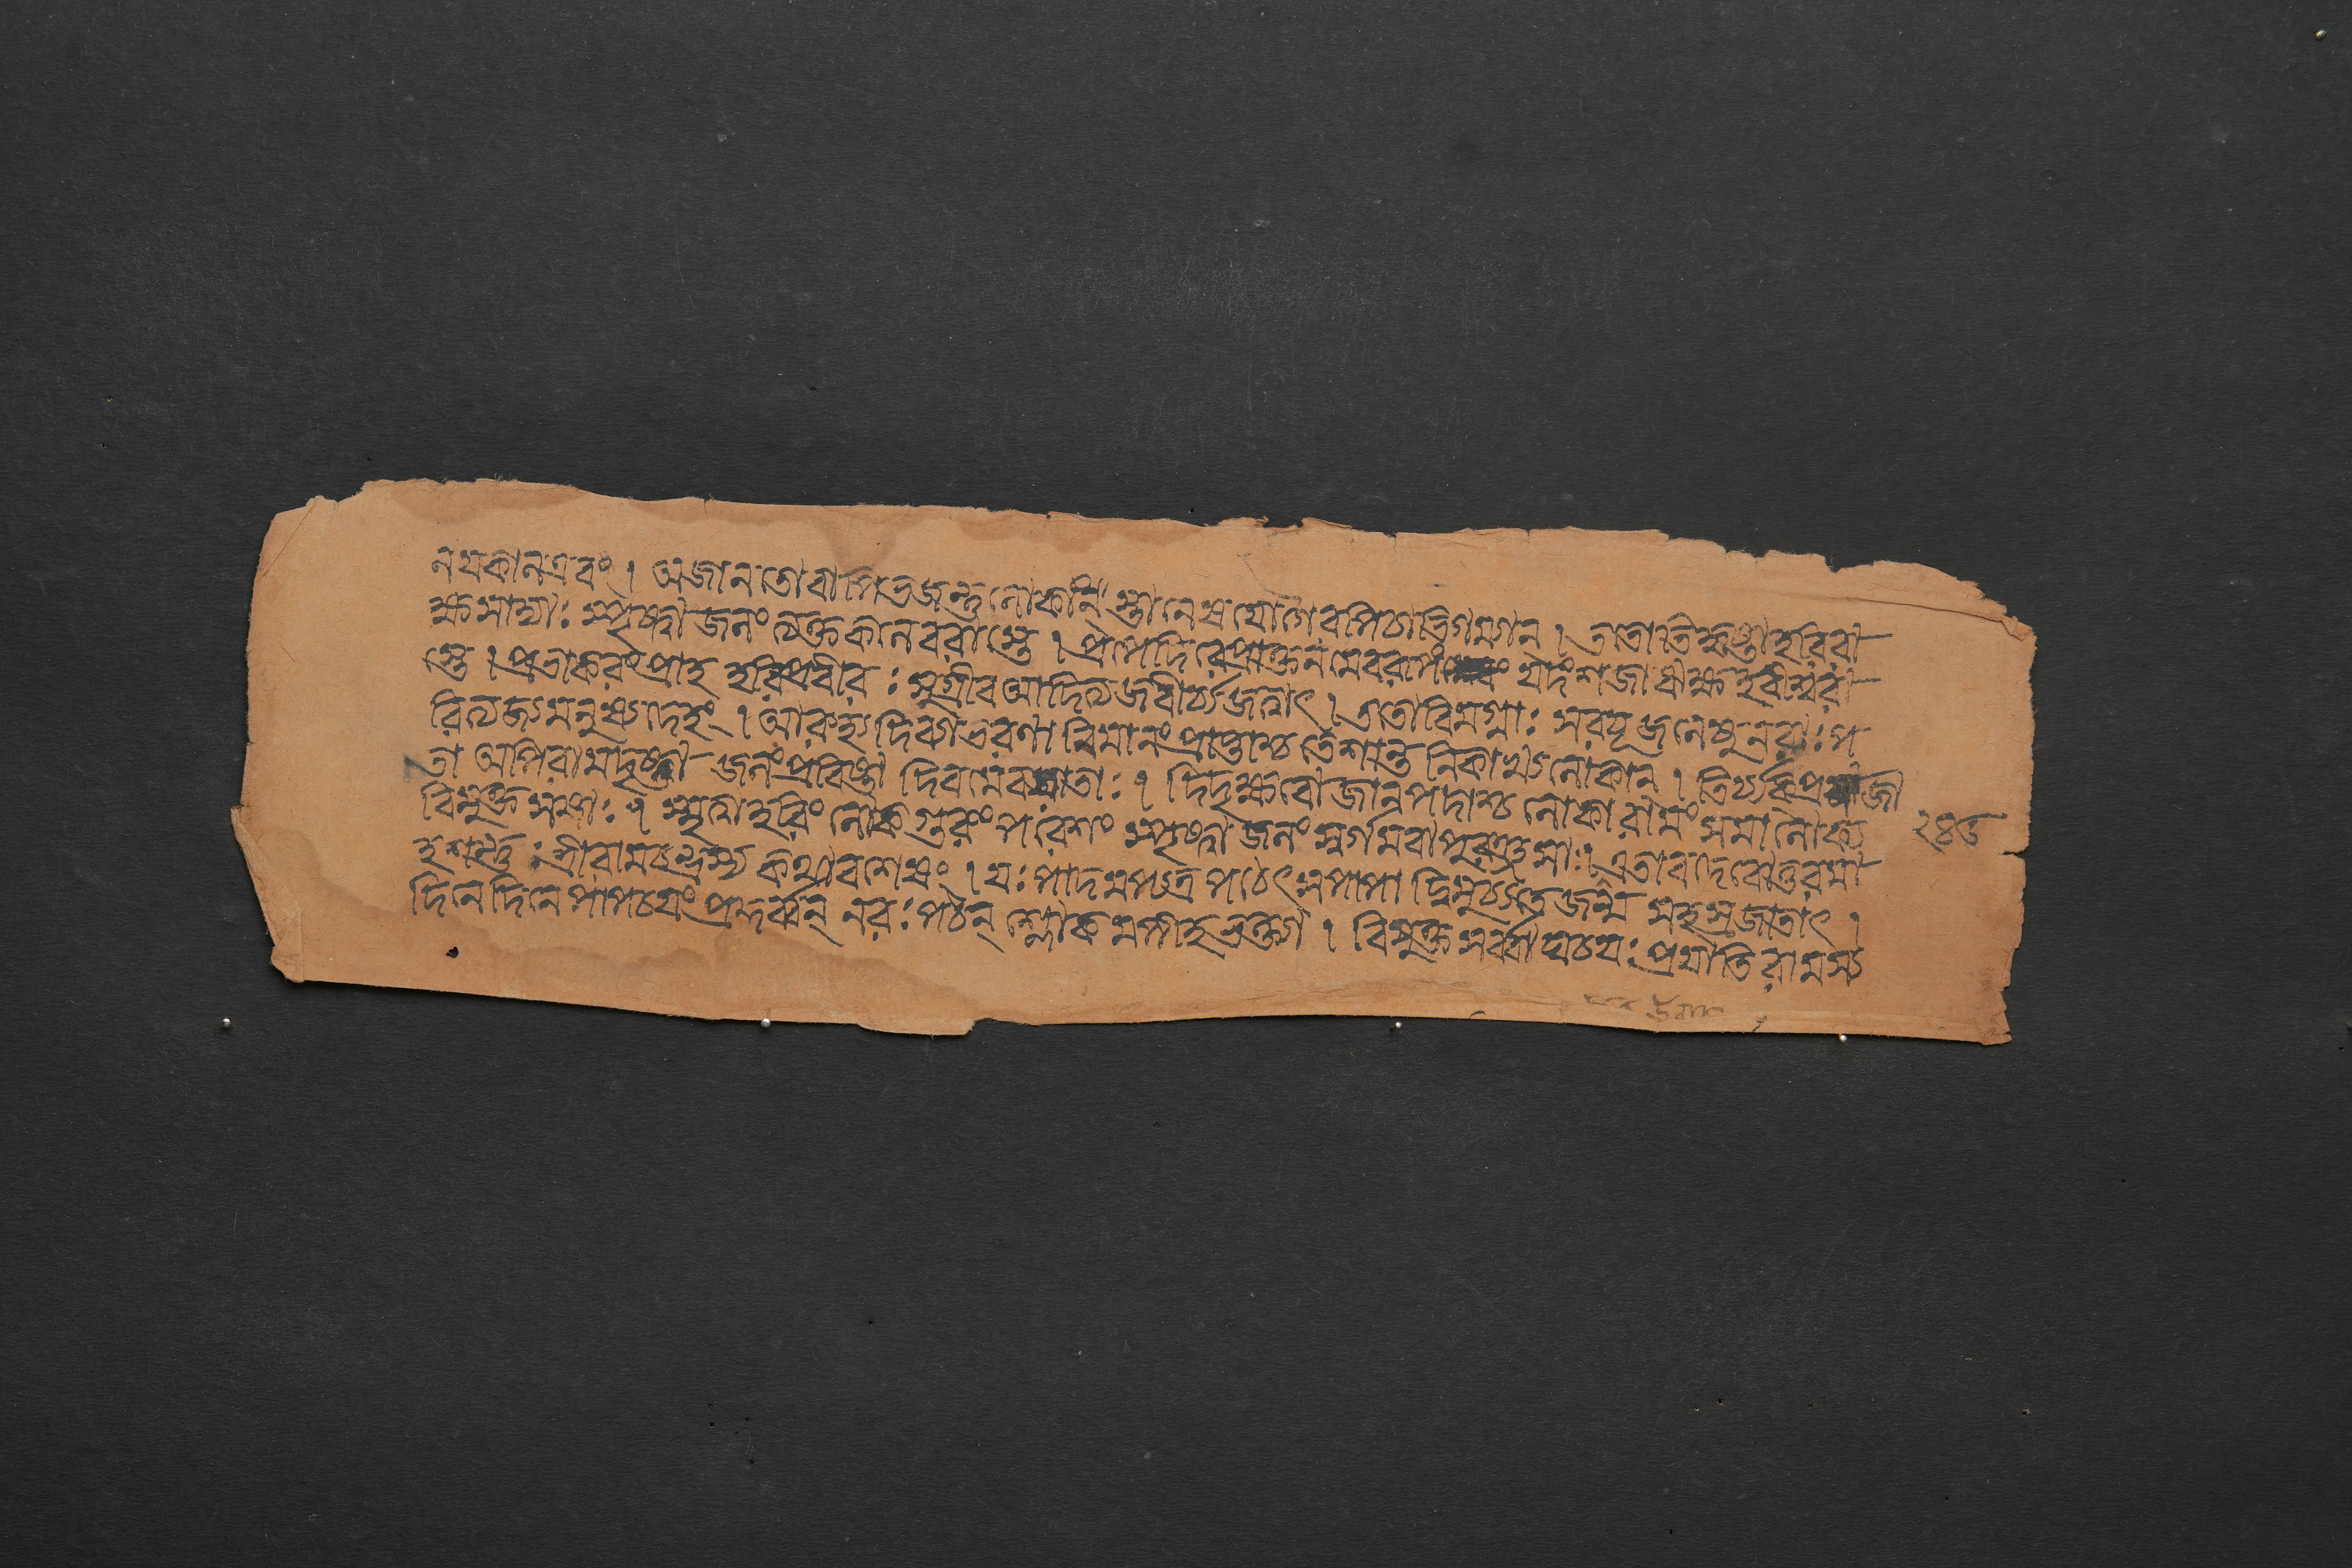 নযকানএবং। অজানতো বাপি ভজন্তু লোকাংস্তানেব যোগৈরপি চাভিগম্যান। ততোতিহৃষ্টা হরিরা
ক্ষসাদ্যাঃ স্পৃষ্ট্বা জলং ত্যক্তকলেবরাস্তে। প্রপেদিরে প্রাক্তনমেবরূপং যদংশজা ঋক্ষহরীশ্বরা
স্তে। প্রভাকরং প্রাহ হরিপ্রবীরঃ সুগ্রীব আদিত্যজবীর্য্যজত্বাৎ। ততো বিমগ্নাঃ সরযূজলেষু নরাঃ প
রিত্যজ্য মনুষ্যদেহং। আরুহ্য দিব্যাভরণা বিমানং প্রাপ্তাশ্চ তে শান্তনিকাখ্যলোকান্। তির্য্যক্প্রজা
তা অপি রামদৃষ্টা জলং প্রবিষ্টা দিবমেবযাতাঃ। দিদৃক্ষবো জানপদাশ্চ লোকা রামং সমালোক্য
বিমুক্তসঙ্গাঃ। স্মৃত্বা হরিং লোকগুরুং পরেশং স্পৃষ্ট্বা জলং স্বর্গমবাপুরুত্তমাঃ। এতাবদেবোত্তরমা
হ শম্ভুঃ শ্রীরামচন্দ্রস্য কথাবশেষং। যঃ পাদমপ্যত্র পঠেৎ স পাপাদ্বিমুচ্যতে জন্ম সহস্রজাতাৎ।
দিনে দিনে পাপচয়ং প্রকুর্ব্বন্ নরঃ পঠেন্ শ্লোকমপীহভক্ত্যা। বিমুক্তসর্ব্বাঘচয়ঃ প্রযাতি রামস্য
২৪৬